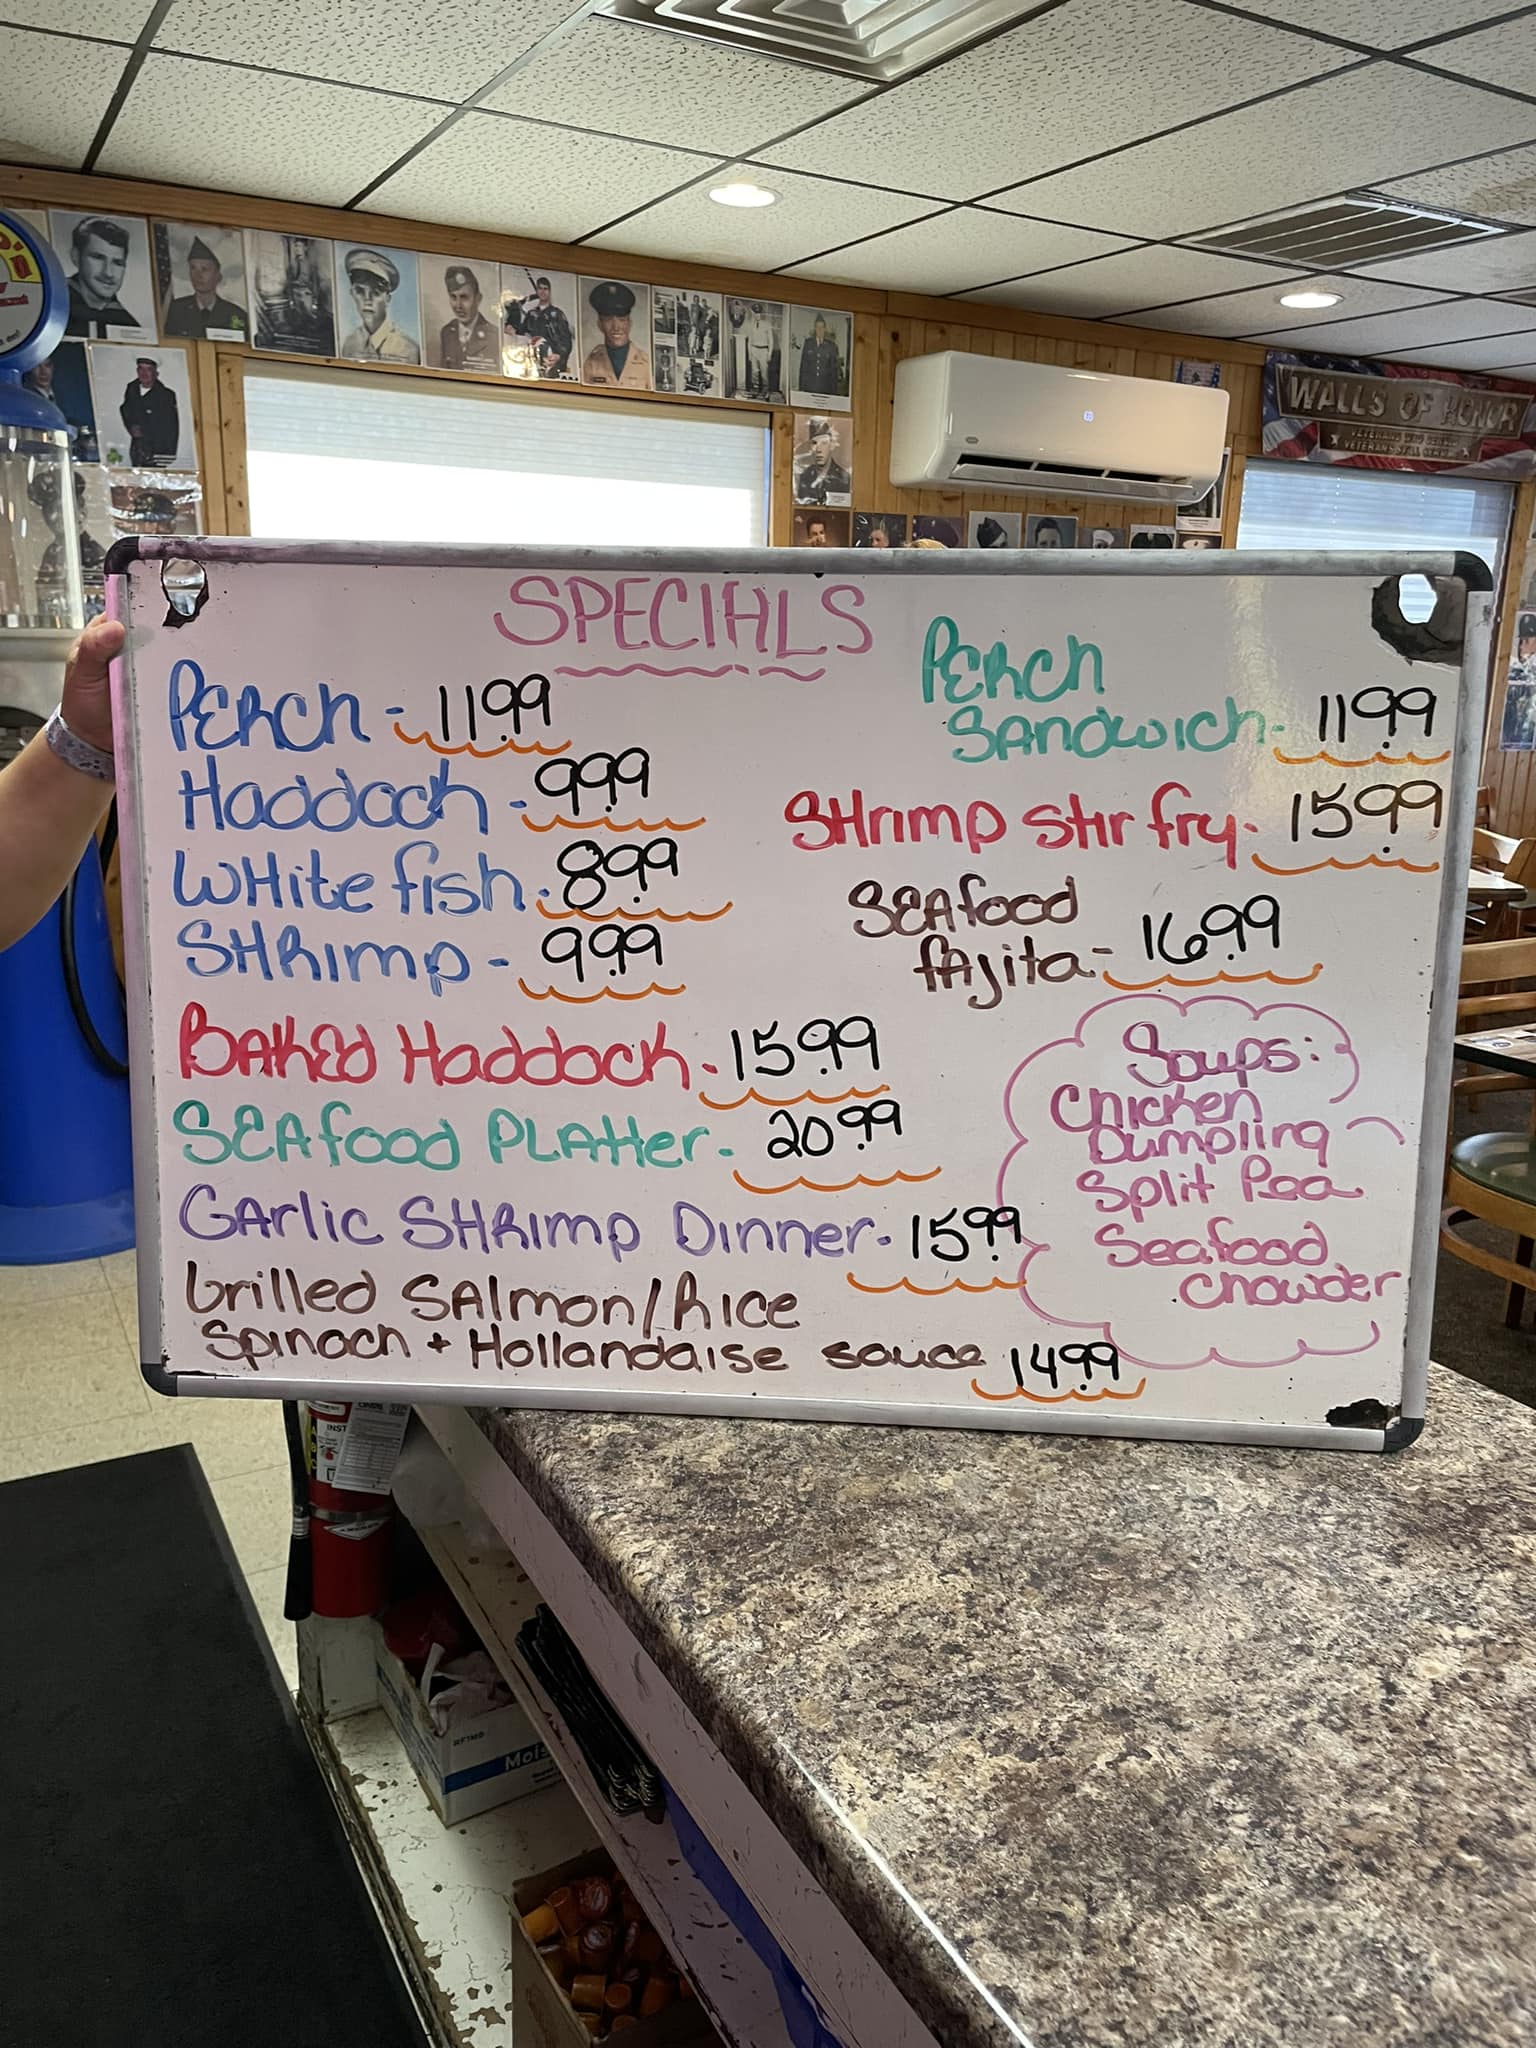 WALLS OF HONOR
VETERANS STILL SERVING
SPECIALS
PERCH - 11.99
HADDOCK - 9.99
WHITE fish - 8.99
SHRIMP - 9.99
BAKED HADDOCK - 15.99
SEAfood PLATTER - 20.99
GARLIC SHRIMP Dinner - 15.99
Grilled SALMON/RICE
Spinach + Hollandaise sauce 14.99
PERCH
SANDWICH - 11.99
SHRIMP stir fry - 15.99
SEAfood
fAjita - 16.99
Soups:
Chicken
Dumpling
Split Pea
Seafood
chowder
INST
RFTMD
Mois